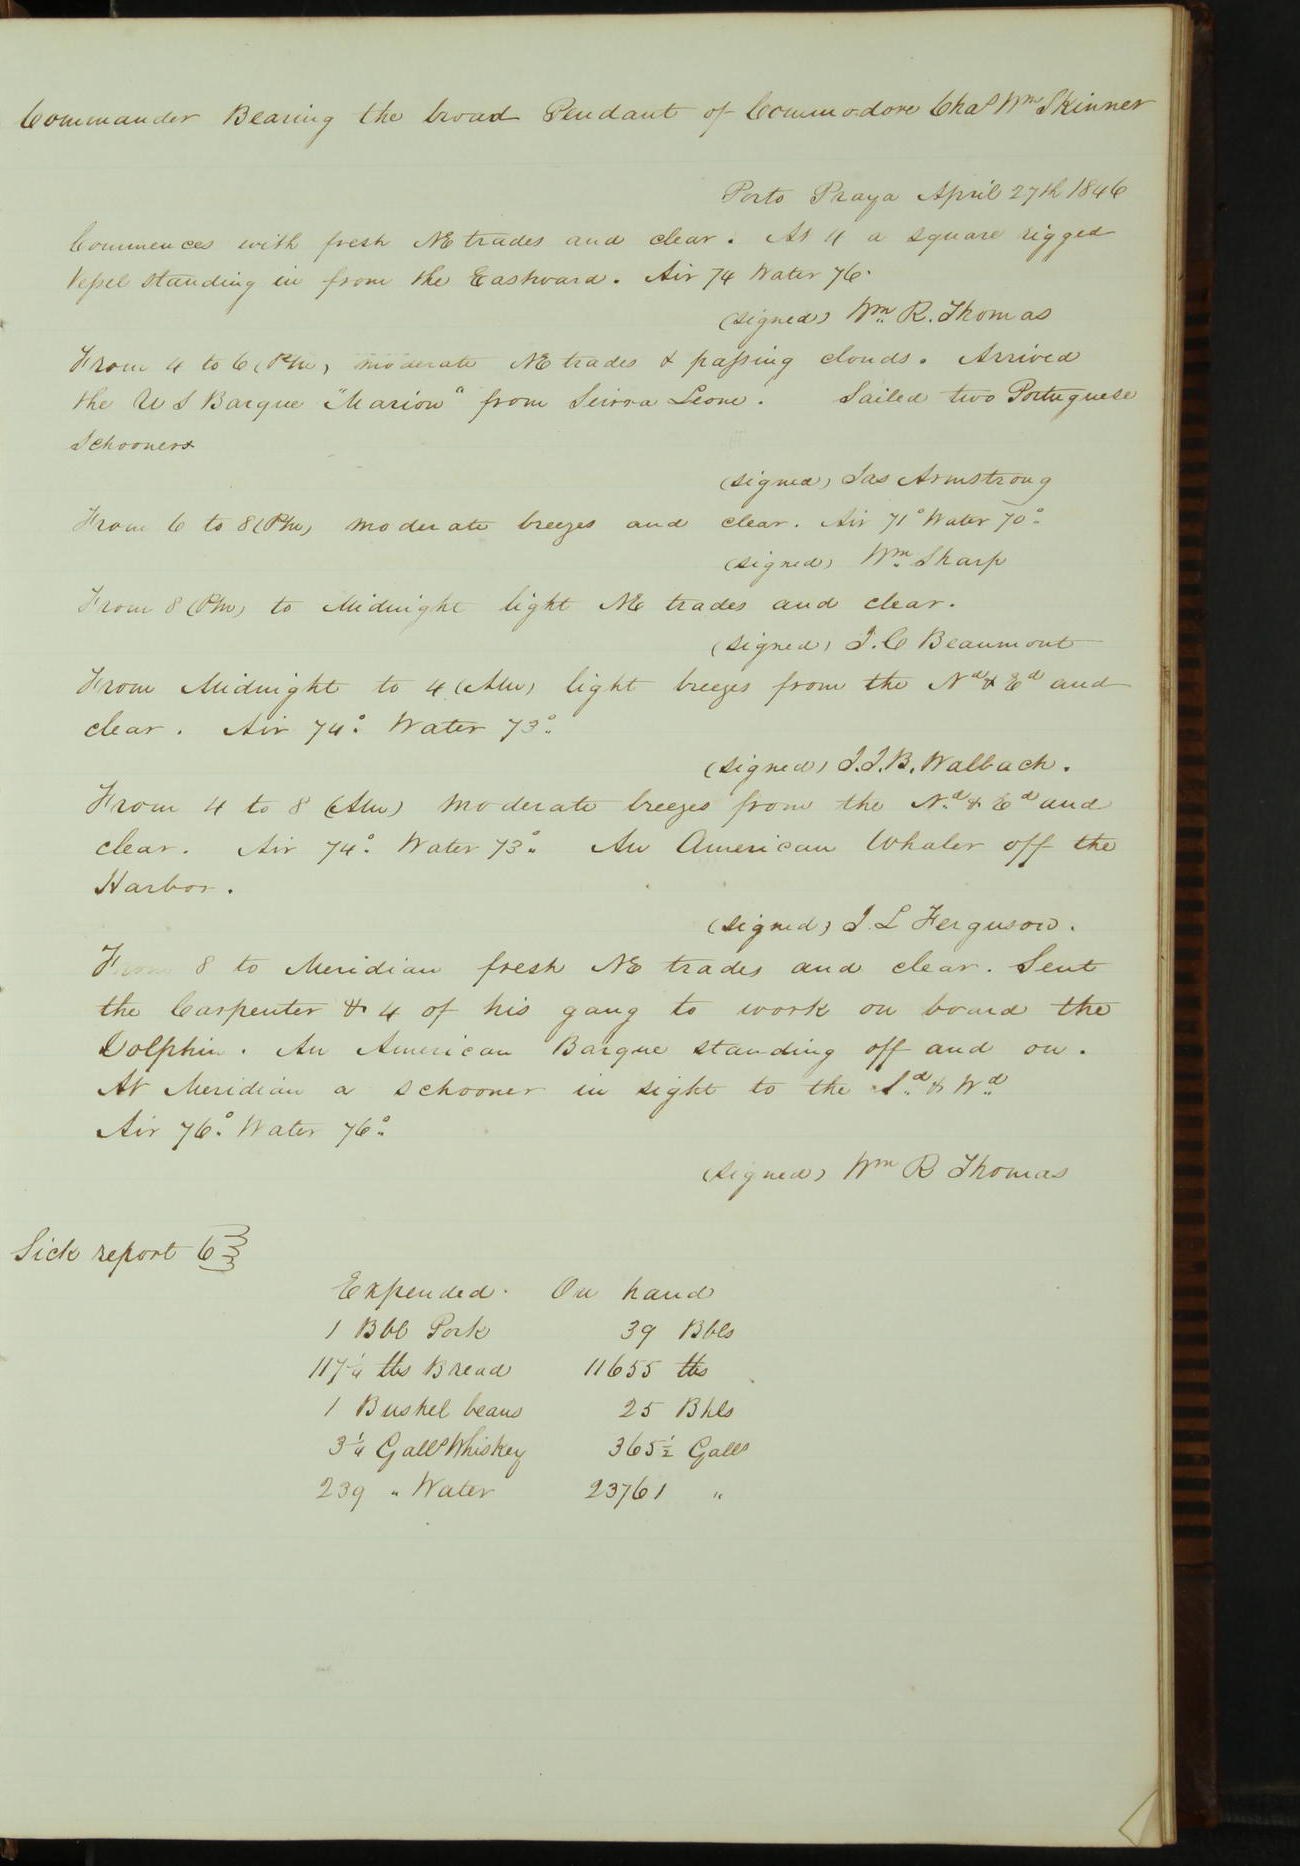 Commander Bearing the broad Pendant of Commodore Chas Wm Skinner
Porto Praya April 27th 1846
Commences with fresh NE trades and clear. At 4 a square rigged
Vessel standing in from the Eastward. Air 74 Water 76.
(signed) Wm. R. Thomas
From 4 to 6 (PM) moderate NE trades & passing clouds. Arrived
the U S Barque "Marion" from Seirra Leone. Sailed two Portuguese
Schooners
(signed) Jas Armstrong
From 6 to 8 (PM) moderate breezes and clear. Air 71° Water 70°
(signed) Wm. Sharp
From 8 (PM) to Midnight light NE trades and clear.
(signed) J. C Beaumont
From Midnight to 4 (AM) light breezes from the Nd & Ed and
clear. Air 74° Water 73°
(signed) J. J. B. Walbach.
From 4 to 8 (AM) moderate breezes from the N.d & Ed and
clear. Air 74° Water 73° An American Whaler off the
Harbor.
(signed) J. L Ferguson.
From 8 to Meridian fresh NE trades and clear. Sent
the Carpenter & 4 of his gang to work on board the
Dolphin. An American Barque standing off and on.
At Meridian a schooner in sight to the Sd. & Wd.
Air 76° Water 76°
(signed) Wm R Thomas
Sick report 6
Expended. On hand
1 Bbl Pork 39 Bbls
117 1/4 lbs Bread 11655 lbs
1 Bushel beans 25 Bhls
3 1/4 Galls Whiskey 365 1/2 Galls
239 " Water 23761 "